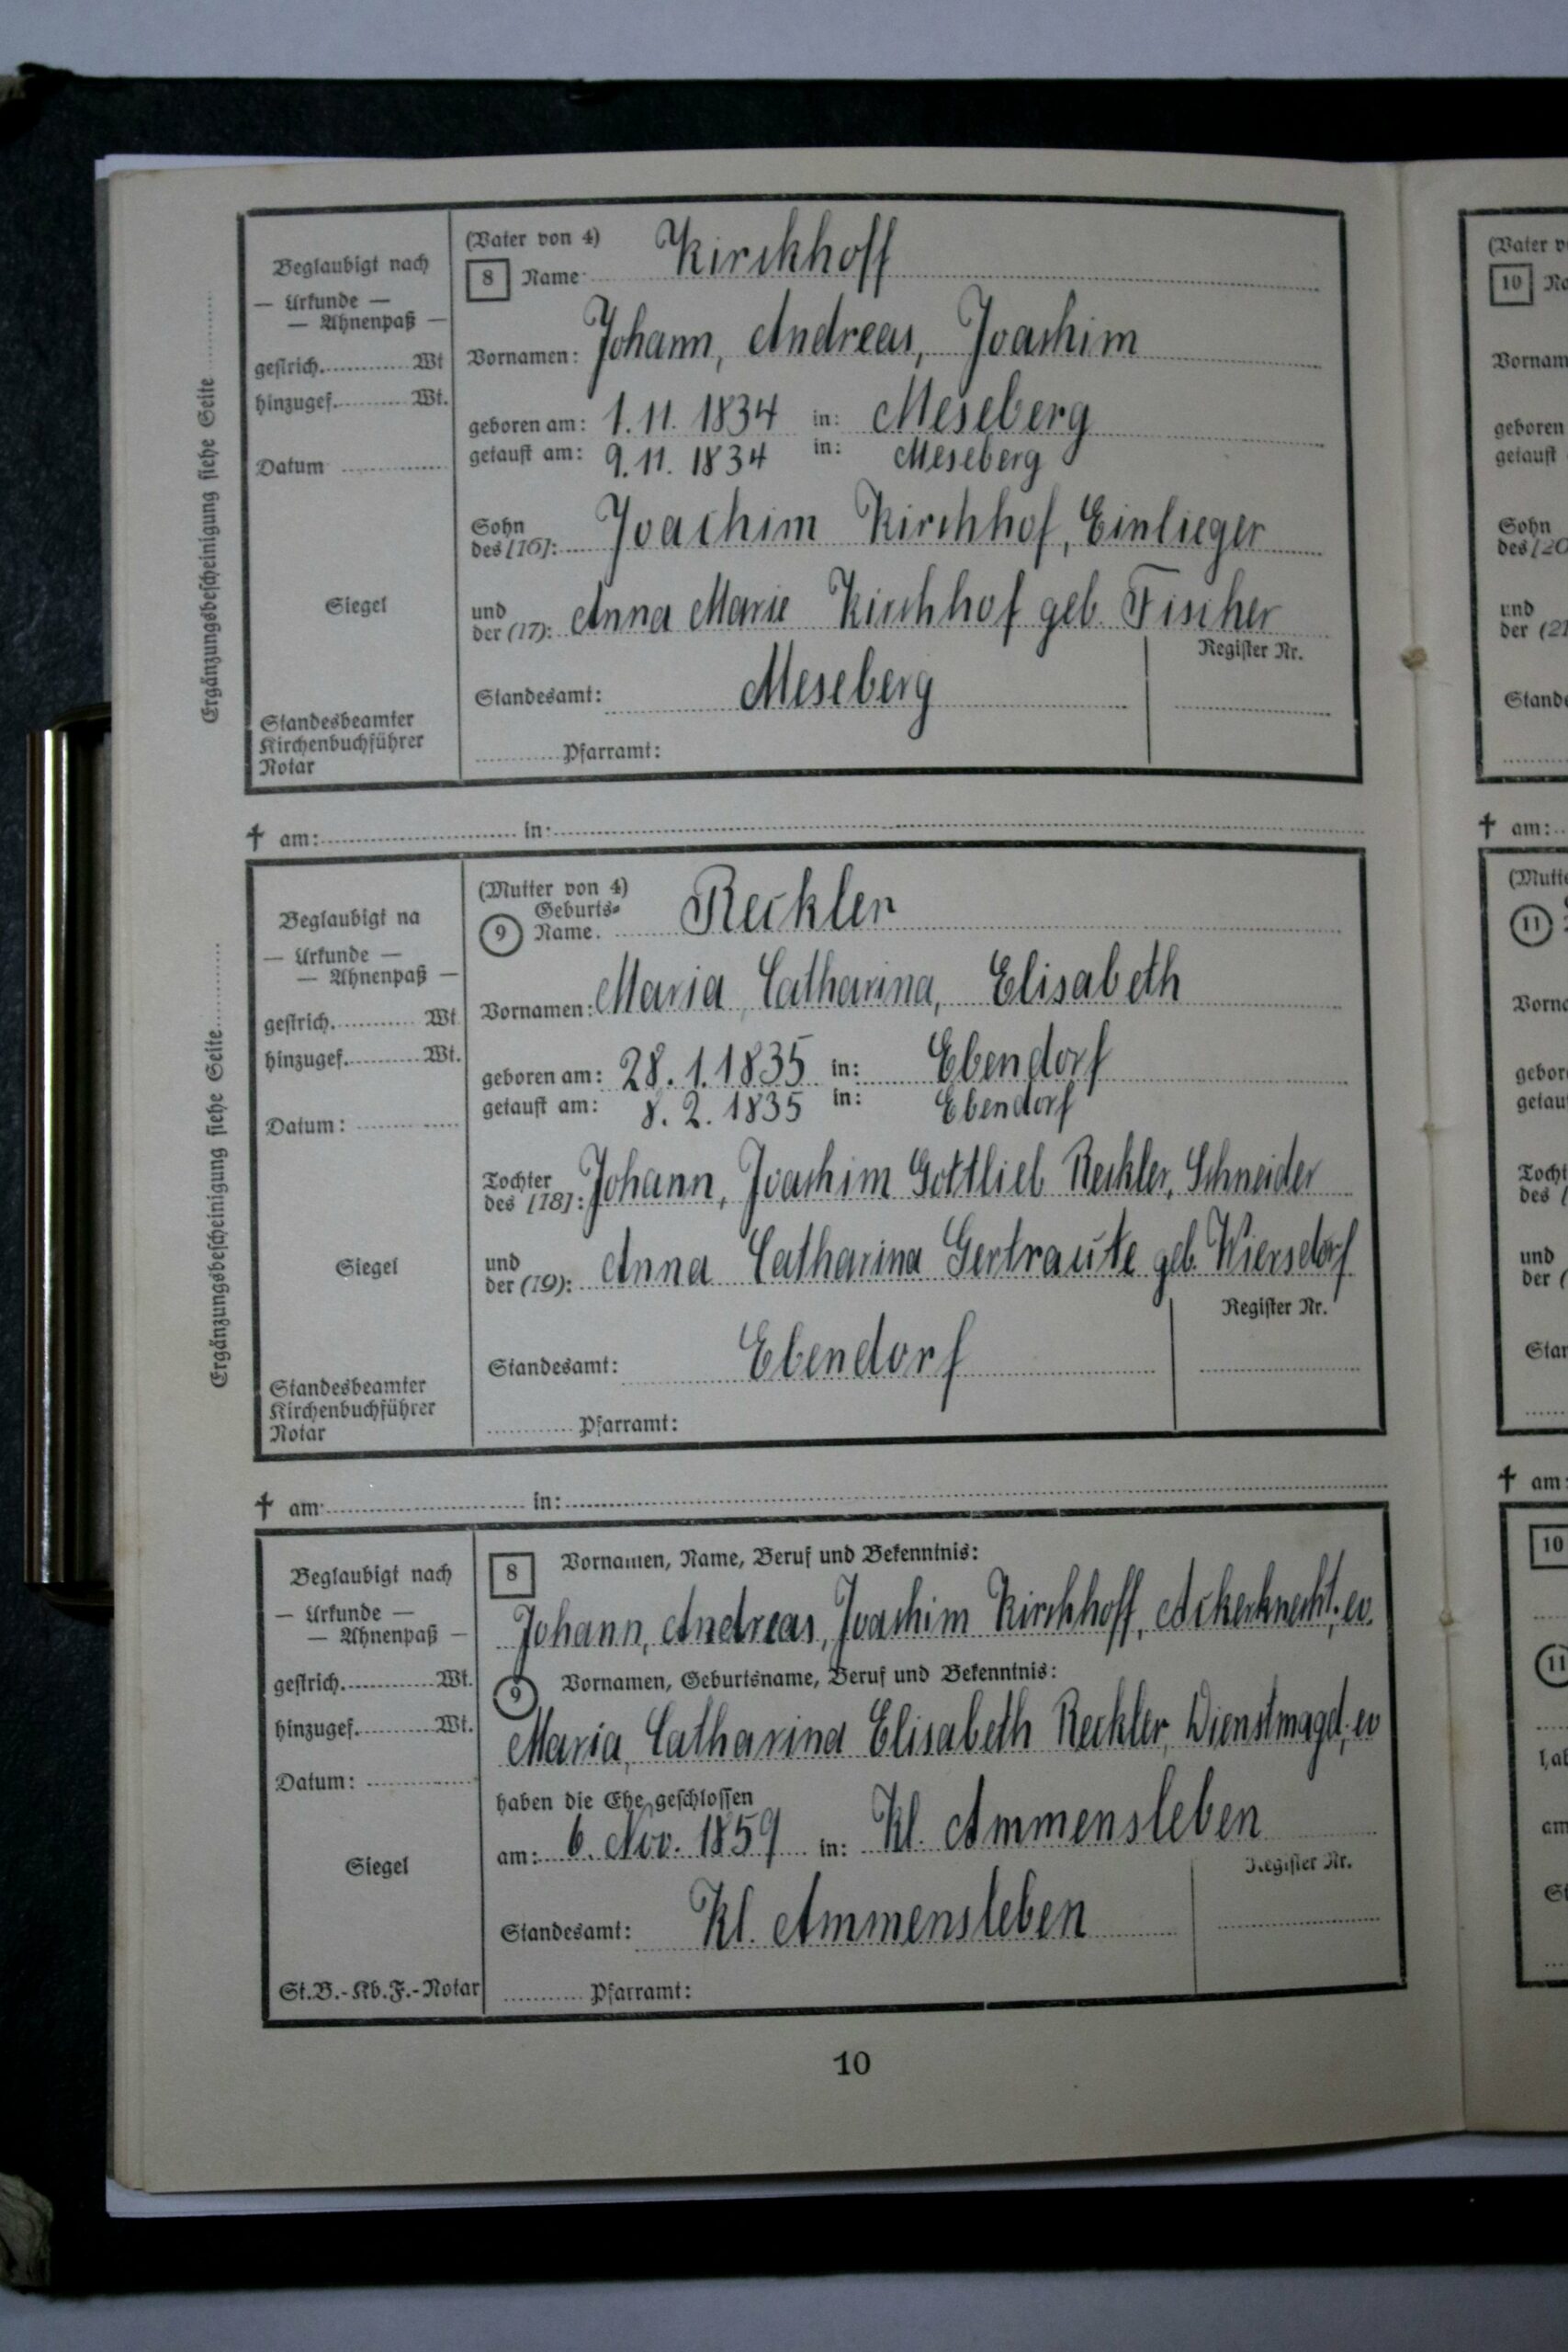 (Vater von 4)
8 Name Kirchhoff
Beglaubigt nach
— Urkunde —
— Ahnenpaß —
gestrich. Wt
hinzugef. Wt.
Datum
Siegel
Standesbeamter
Kirchenbuchführer
Notar
Ergänzungsbescheinigung siehe Seite
Vornamen: Johann, Andreas, Joachim
geboren am: 1.11. 1834 in: Meseberg
getauft am: 9.11. 1834 in: Meseberg
Sohn
des [16]: Joachim Kirchhof, Einlieger
und
der (17): Anna Marie Kirchhof geb. Fischer
Register Nr.
Standesamt: Meseberg
Pfarramt:
✝ am: in:
Beglaubigt na
— Urkunde —
— Ahnenpaß —
gestrich. Wt
hinzugef. Wt.
Datum:
Siegel
Standesbeamter
Kirchenbuchführer
Notar
Ergänzungsbescheinigung siehe Seite
(Mutter von 4)
Geburts-
9 Name. Reckler
Vornamen: Maria, Catharina, Elisabeth
geboren am: 28. 1. 1835 in: Ebendorf
getauft am: 8. 2. 1835 in: Ebendorf
Tochter
des [18]: Johann, Joachim Gottlieb Reckler, Schneider
und
der (19): Anna Catharina Gertraute geb. Wiersdorf
Register Nr.
Standesamt: Ebendorf
Pfarramt:
✝ am: in:
Beglaubigt nach
— Urkunde —
— Ahnenpaß —
gestrich. Wt.
hinzugef. Wt.
Datum:
Siegel
St.B.-Kb.F.-Notar
8 Vornamen, Name, Beruf und Bekenntnis:
Johann, Andreas, Joachim Kirchhoff, Ackerknecht, ev.
9 Vornamen, Geburtsname, Beruf und Bekenntnis:
Maria, Catharina Elisabeth Reckler, Dienstmagd, ev
haben die Ehe geschlossen
am: 6. Nov. 1859 in: Kl. Ammensleben
Register Nr.
Standesamt: Kl. Ammensleben
Pfarramt:
10
(Vater v
10
geboren
getauft
Sohn
des [20
und
der (21
✝ am:
11
und
der (
✝ am:
10
11
am